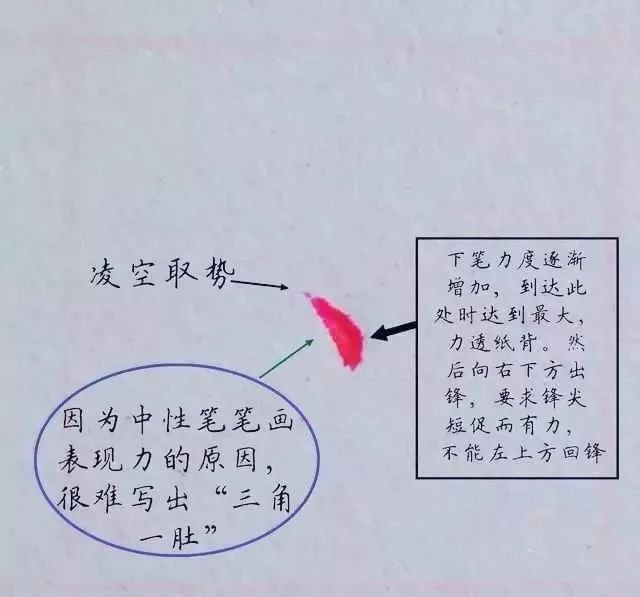 凌空取势
下笔力度逐渐
增加，到达此
处时达到最大，
力透纸背。然
后向右下方出
锋，要求锋尖
短促而有力，
不能左上方回锋
因为中性笔笔画
表现力的原因，
很难写出“三角
一肚”